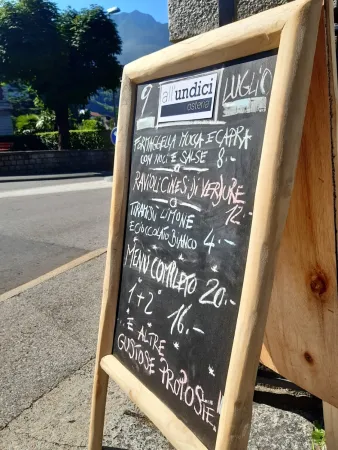 9 all'undici LUGLIO
osteria
FORMAGGELLA MUCCA E CAPRA
CON NOCI E SALSE 8.-
RAVIOLI CINESI DI VERDURE
12.-
TIRAMISÙ LIMONE
E CIOCCOLATO BIANCO 4.-
MENÙ COMPLETO 20.-
1° + 2° 16.-
... E ALTRE
GUSTOSE PROPOSTE